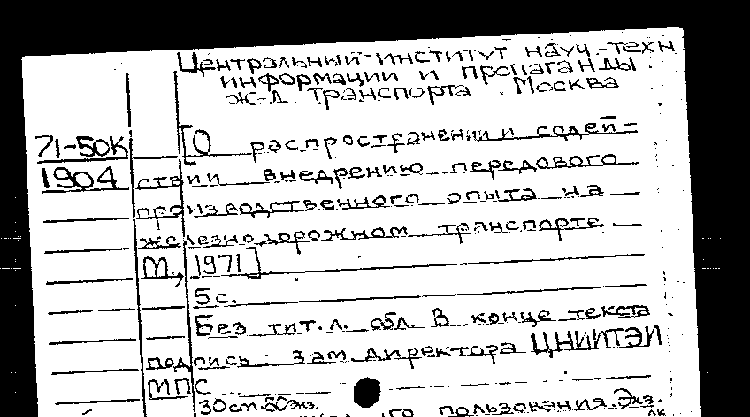 Центральный институт науч.-техн.
информации и пропаганды
ж-д. транспорта. Москва
71-50К [О распространении и содей-
1904 ствии внедрению передового
производственного опыта на
железнодорожном транспорте.
М., 1971]
5с.
Без тит. л. обл. В конце текста
подпись: зам. директора ЦНИИТЭИ
МПС
30ст. 50экз.
пользования. Экз.